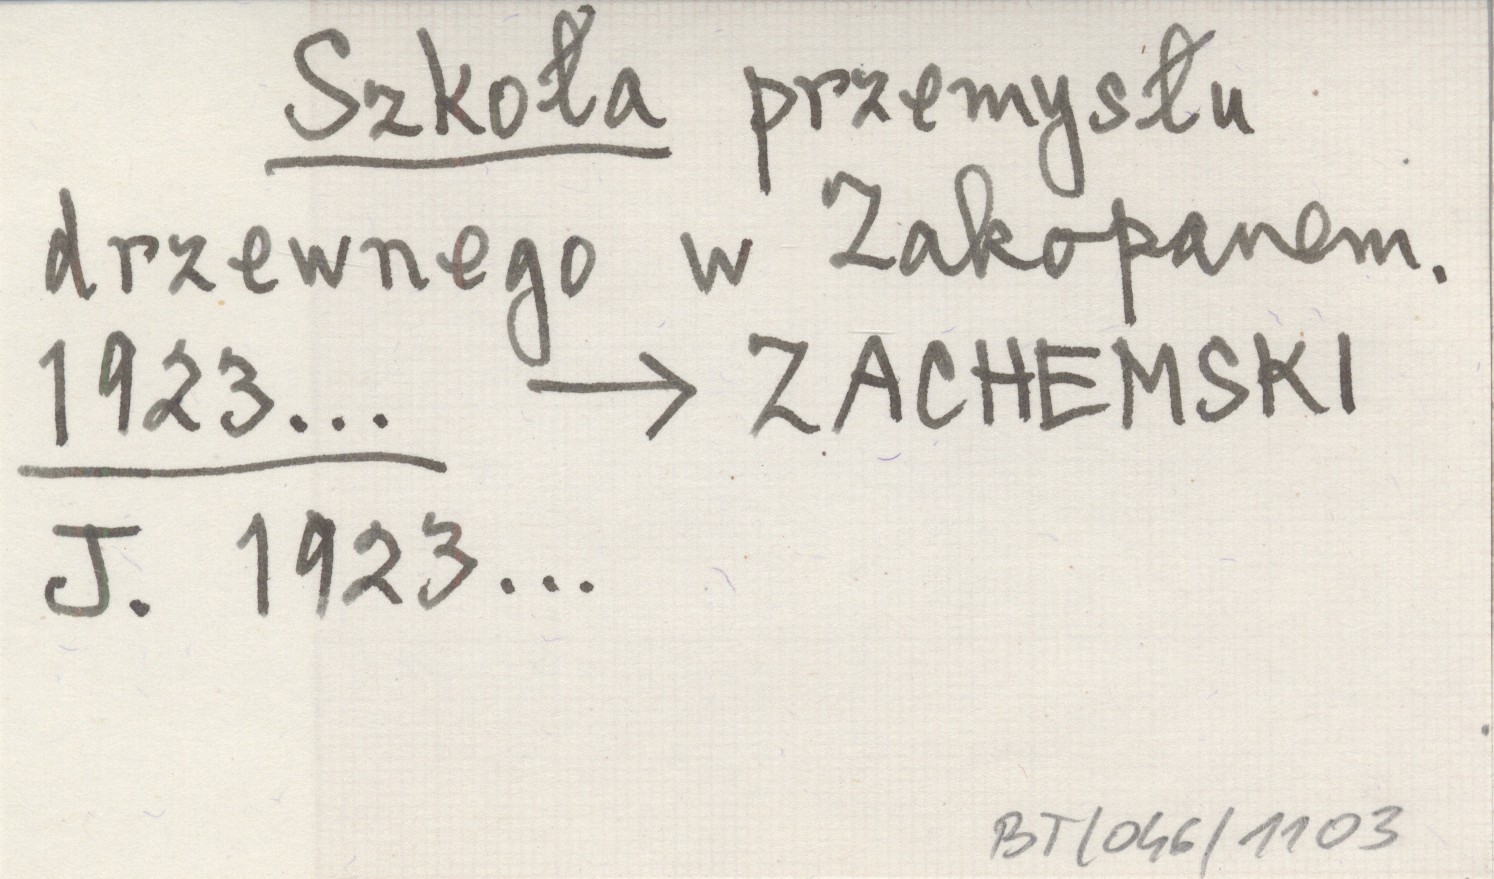 Szkoła przemysłu
drzewnego w Zakopanem.
1923... → ZACHEMSKI
J. 1923...
BT/046/1103